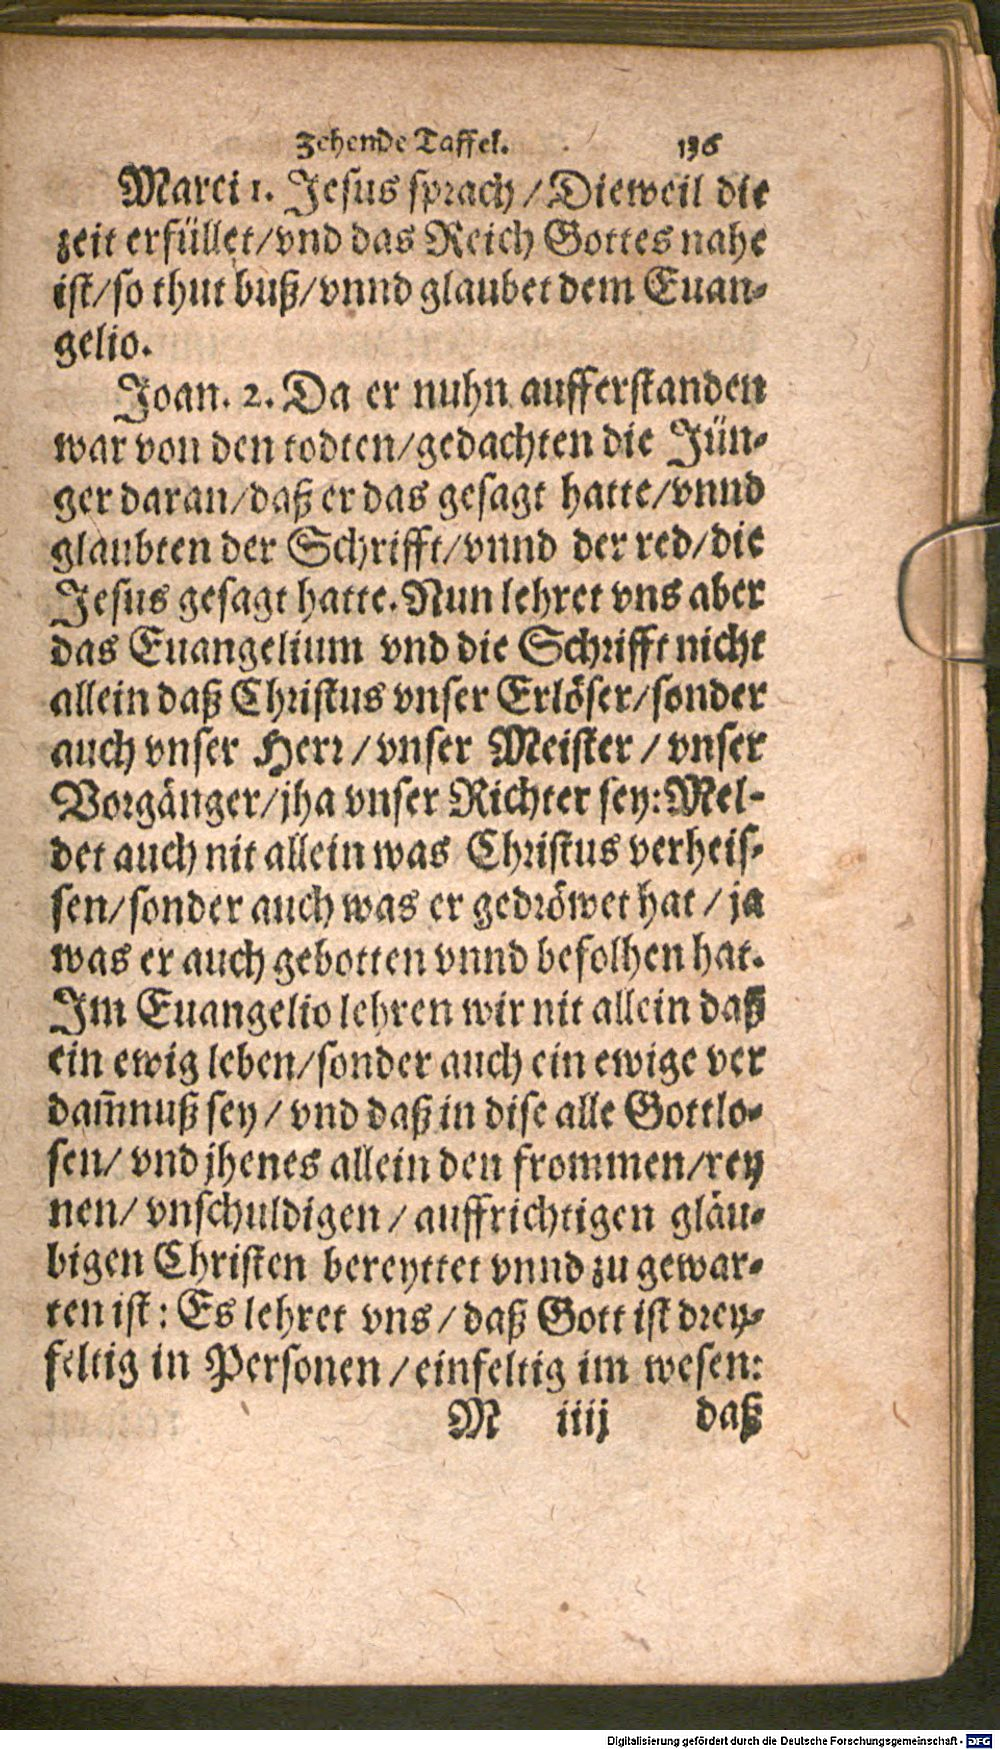 Zehende Taffel. 136
Marci 1. Jesus sprach / Dieweil die
zeit erfüllet / vnd das Reich Gottes nahe
ist / so thut buß / vnnd glaubet dem Euan-
gelio.
Joan. 2. Da er nuhn aufferstanden
war von den todten / gedachten die Jün-
ger daran / daß er das gesagt hatte / vnnd
glaubten der Schrifft / vnnd der red / die
Jesus gesagt hatte. Nun lehret vns aber
das Euangelium vnd die Schrifft nicht
allein daß Christus vnser Erlöser / sonder
auch vnser Herr / vnser Meister / vnser
Vorgänger / jha vnser Richter sey: Mel-
det auch nit allein was Christus verheis-
sen / sonder auch was er gedröwet hat / ja
was er auch gebotten vnnd befolhen hat.
Im Euangelio lehren wir nit allein daß
ein ewig leben / sonder auch ein ewige ver
dam̄nuß sey / vnd daß in dise alle Gottlo-
sen / vnd jhenes allein den frommen / rey
nen / vnschuldigen / auffrichtigen gläu-
bigen Christen bereyttet vnnd zu gewar-
ten ist : Es lehret vns / daß Gott ist drey-
feltig in Personen / einfeltig im wesen:
M iiij daß
Digitalisierung gefördert durch die Deutsche Forschungsgemeinschaft - DFG